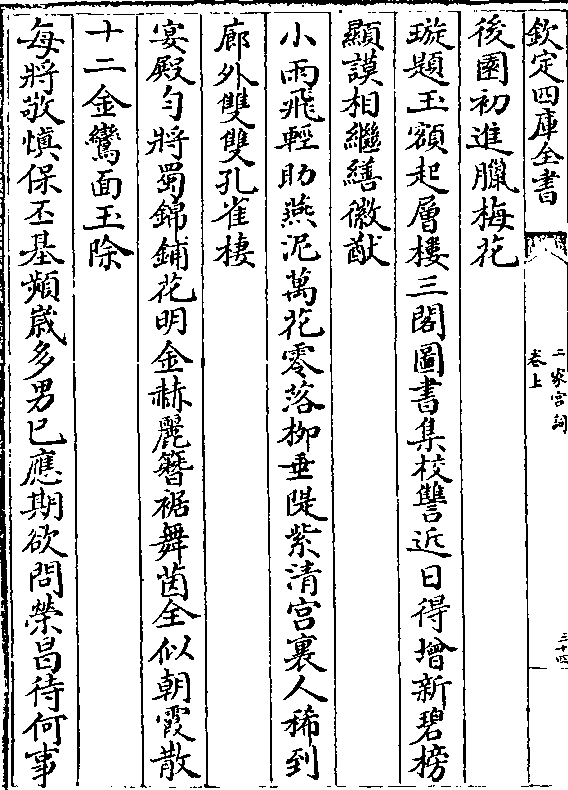 欽定四庫全書
二家宮詞
卷上
三十四
後園初進臘梅花
璇題玉額起層樓三閣圖書集校讐近日得增新碧榜
顯謨相繼繕徽猷
小雨飛輕助燕泥萬花零落柳垂隄紫清宮裏人稀到
廊外雙雙孔雀棲
宴殿勻將蜀錦鋪花明金赫麗簪裾舞茵全似朝霞散
十二金鸞面玉除
每將敬慎保丕基頻歲多男已應期欲問榮昌待何事